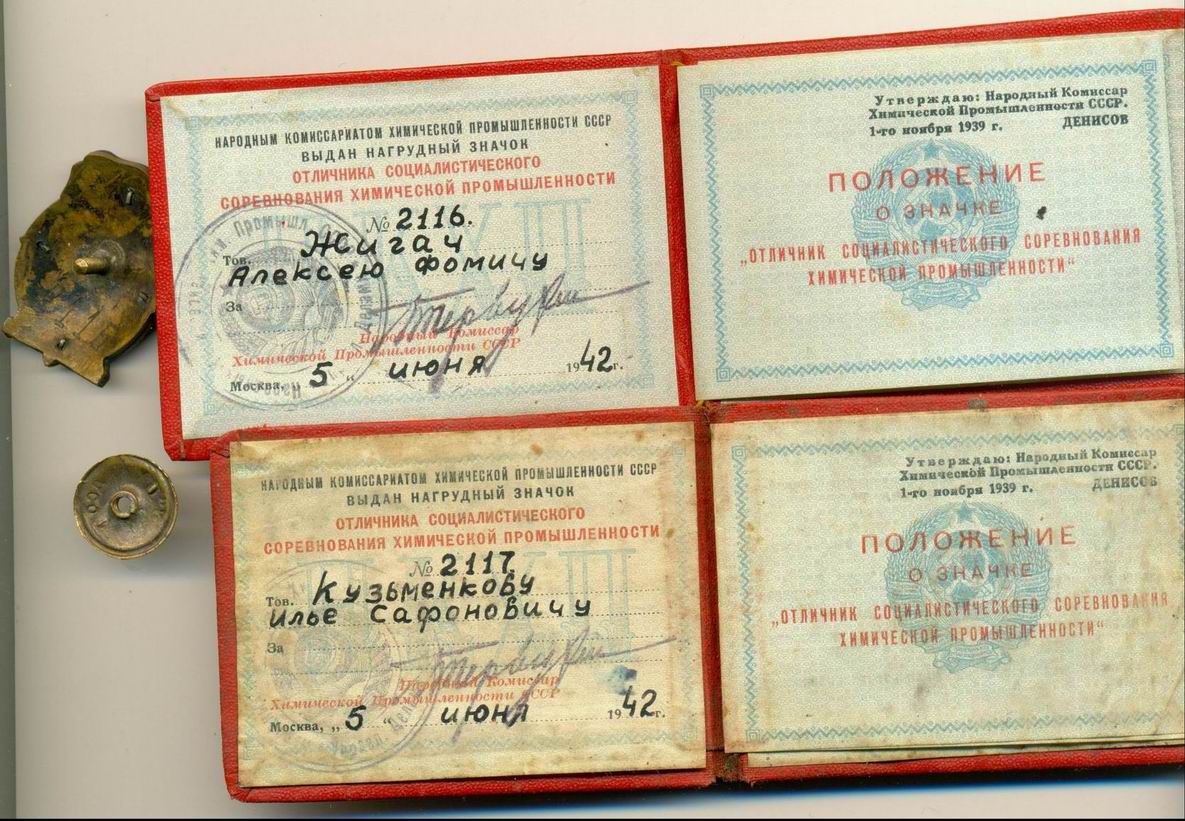 НАРОДНЫМ КОМИССАРИАТОМ ХИМИЧЕСКОЙ ПРОМЫШЛЕННОСТИ СССР
ВЫДАН НАГРУДНЫЙ ЗНАЧОК
ОТЛИЧНИКА СОЦИАЛИСТИЧЕСКОГО
СОРЕВНОВАНИЯ ХИМИЧЕСКОЙ ПРОМЫШЛЕННОСТИ
№ 2116.
Тов. Жигач
Алексею Фомичу
За
Народный Комиссар
Химической Промышленности СССР
Москва, „ 5 “ июня 1942г.
Утверждаю: Народный Комиссар
Химической Промышленности СССР.
1-го ноября 1939 г. ДЕНИСОВ
ПОЛОЖЕНИЕ
О ЗНАЧКЕ
„ОТЛИЧНИК СОЦИАЛИСТИЧЕСКОГО СОРЕВНОВАНИЯ
ХИМИЧЕСКОЙ ПРОМЫШЛЕННОСТИ“
НАРОДНЫМ КОМИССАРИАТОМ ХИМИЧЕСКОЙ ПРОМЫШЛЕННОСТИ СССР
ВЫДАН НАГРУДНЫЙ ЗНАЧОК
ОТЛИЧНИКА СОЦИАЛИСТИЧЕСКОГО
СОРЕВНОВАНИЯ ХИМИЧЕСКОЙ ПРОМЫШЛЕННОСТИ
№ 2117.
Тов. Кузьменкову
Илье Сафоновичу
За
Народный Комиссар
Химической Промышленности СССР
Москва, „ 5 “ июня 1942г.
Утверждаю: Народный Комиссар
Химической Промышленности СССР.
1-го ноября 1939 г. ДЕНИСОВ
ПОЛОЖЕНИЕ
О ЗНАЧКЕ
„ОТЛИЧНИК СОЦИАЛИСТИЧЕСКОГО СОРЕВНОВАНИЯ
ХИМИЧЕСКОЙ ПРОМЫШЛЕННОСТИ“